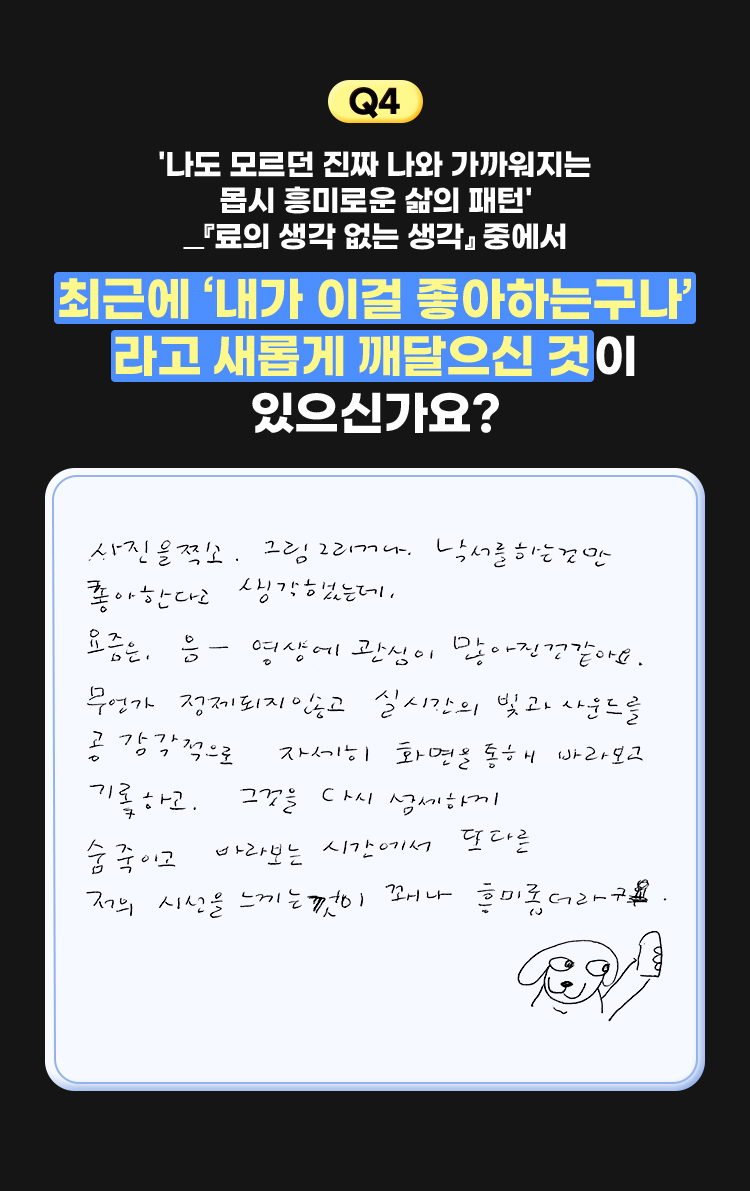 Q4
'나도 모르던 진짜 나와 가까워지는
몹시 흥미로운 삶의 패턴'
_『료의 생각 없는 생각』 중에서
최근에 ‘내가 이걸 좋아하는구나’
라고 새롭게 깨달으신 것이
있으신가요?
사진을찍고. 그림그리거나. 낙서를하는것만
좋아한다고 생각했었는데,
요즘은, 음ㅡ 영상에 관심이 많아진것같아요.
무언가 정제되지않고 실시간의 빛과 사운드를
공감각적으로 자세히 화면을통해 바라보고
기록하고. 그것을 다시 섬세하게
숨죽이고 바라보는 시간에서 또다른
저의 시선을 느끼는것이 꽤나 흥미롭더라구요.